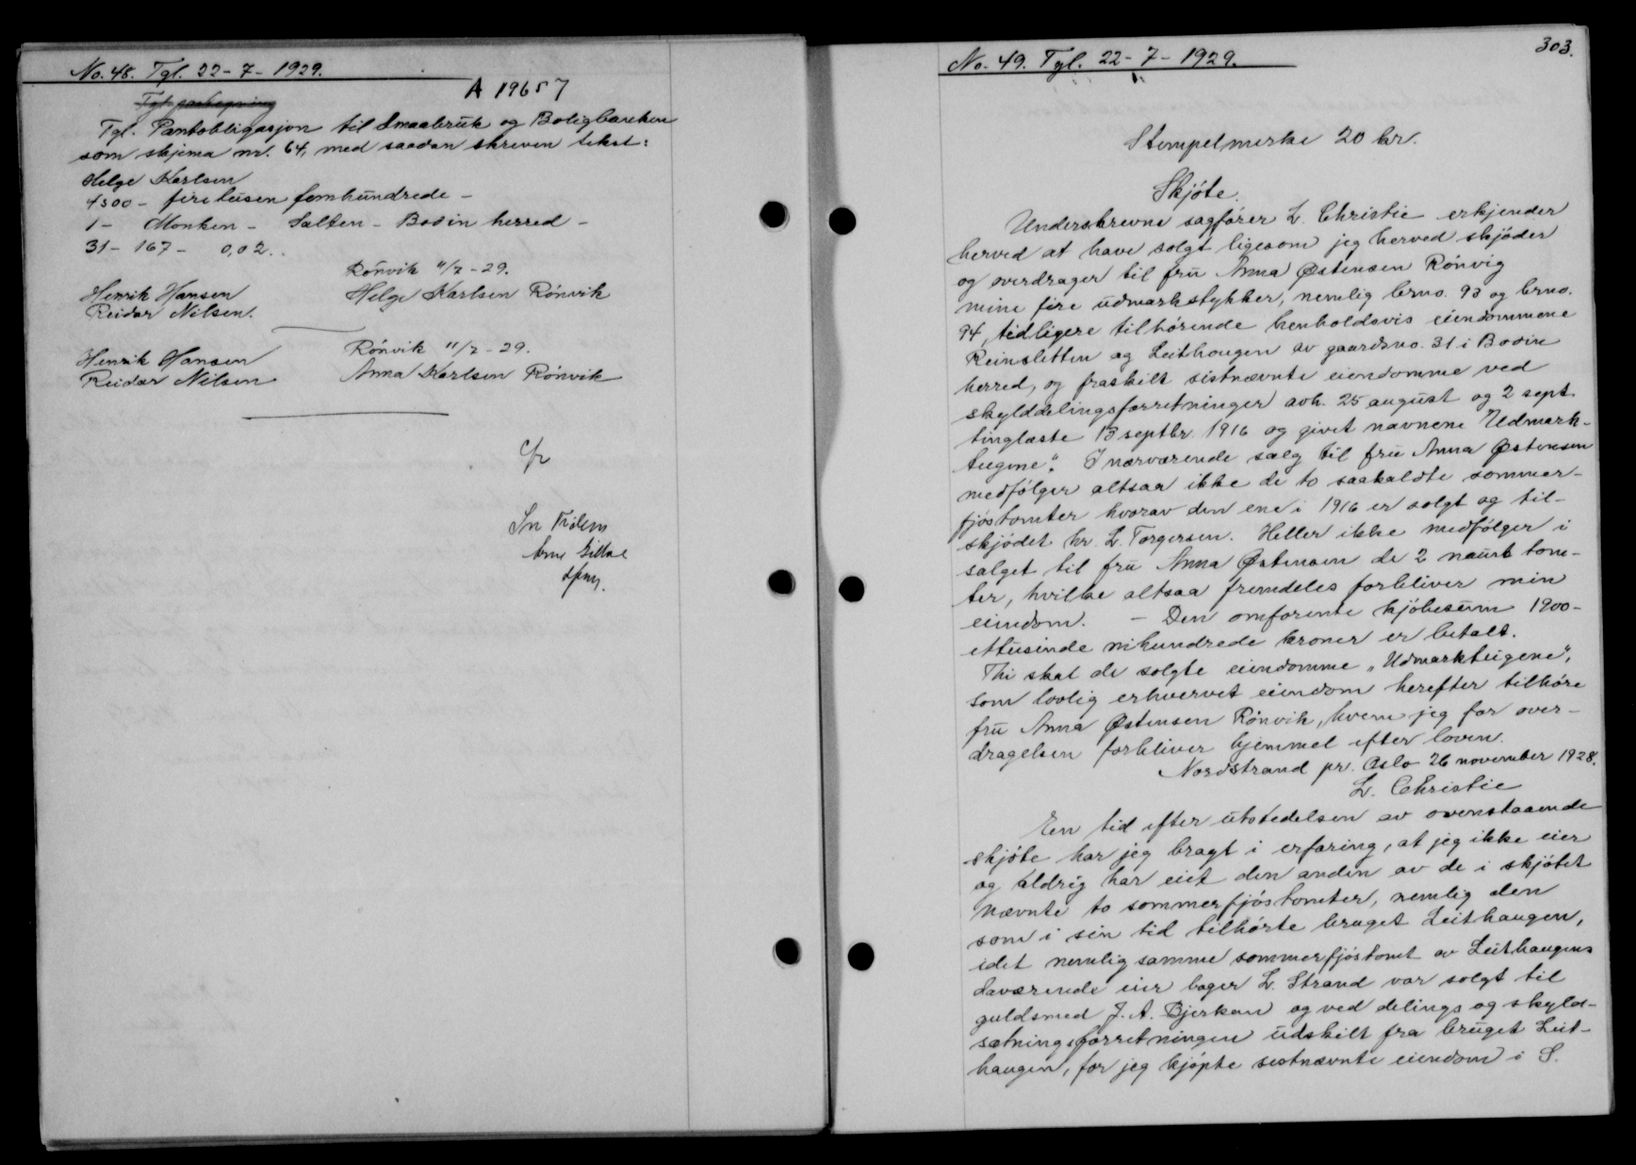 No. 48. Tgl. 22-7-1929.
A 19657
Tgl. Pantobligasjon til Smaabruk og Boligbanken
som skjema nr. 64, med saadan skreven tekst:
Helge Karlsen
4500 - firetusen femhundrede -
1 - Monken - Salten - Bodin herred -
31 - 167 - 0,02..
Rönvik 11/7 - 29.
Henrik Hansen Helge Karlsen Rönvik
Reidar Nilsen.
Rönvik 11/7 - 29.
Henrik Hansen Anna Karlsen Rönvik
Reidar Nilsen
303.
No. 49. Tgl. 22-7-1929.
Stempelmerke 20 kr.
Skjöte.
Underskrevne sagförer L. Christie erkjender
herved at have solgt ligesom jeg herved skjöder
og overdrager til fru Anna Östensen Rönvig
mine fire udmarkstykker, nemlig brno. 93 og brno.
94, tidligere tilhörende henholdsvis eiendommene
Reinsletten og Leithaugen av gaardsno. 31 i Bodin
herred, og fraskilt sistnævnte eiendomme ved
skylddelingsforretninger avh. 25 august og 2 sept.
tinglæste 13 septbr 1916 og givet navnene "Udmark-
teigene". I nærværende salg til fru Anna Östensen
medfölger altsaa ikke de to saakaldte sommer-
fjöstomter hvorav den ene i 1916 er solgt og til-
skjödet hr. L. Torgersen. Heller ikke medfölger i
salget til fru Anna Östensen de 2 naust tom-
ter, hvilke altsaa fremdeles forbliver min
eiendom. - Den omforente kjöbesum 1900 -
ettusinde nihundrede kroner er betalt.
Thi skal de solgte eiendomme "Udmarkteigene",
som lovlig erhvervet eiendom herefter tilhöre
fru Anna Östensen Rönvik, hvem jeg for over-
dragelsen forbliver hjemmel efter loven.
Nordstrand pr. Oslo 26 november 1928.
L. Christie
En tid efter utstedelsen av ovenstaaende
skjöte har jeg bragt i erfaring, at jeg ikke eier
og aldrig har eiet den anden av de i skjötet
nævnte to sommerfjöstomter, nemlig den
som i sin tid tilhörte bruget Leithaugen,
idet nemlig samme sommerfjöstomt av Leithaugens
daværende eier bager L. Strand var solgt til
guldsmed J. A. Bjerkan og ved delings og skyld-
sætningsforretningen udskilt fra bruget Leit-
haugen, för jeg kjöpte sistnævnte eiendom i S.